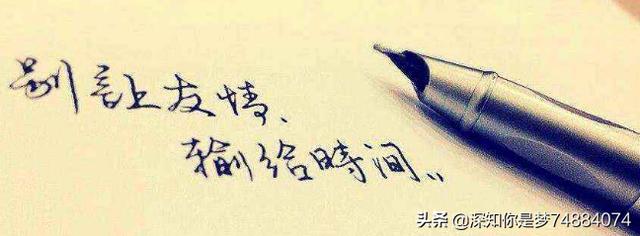 别讓友情、
输给時间..
头条 @深知你是梦74884074